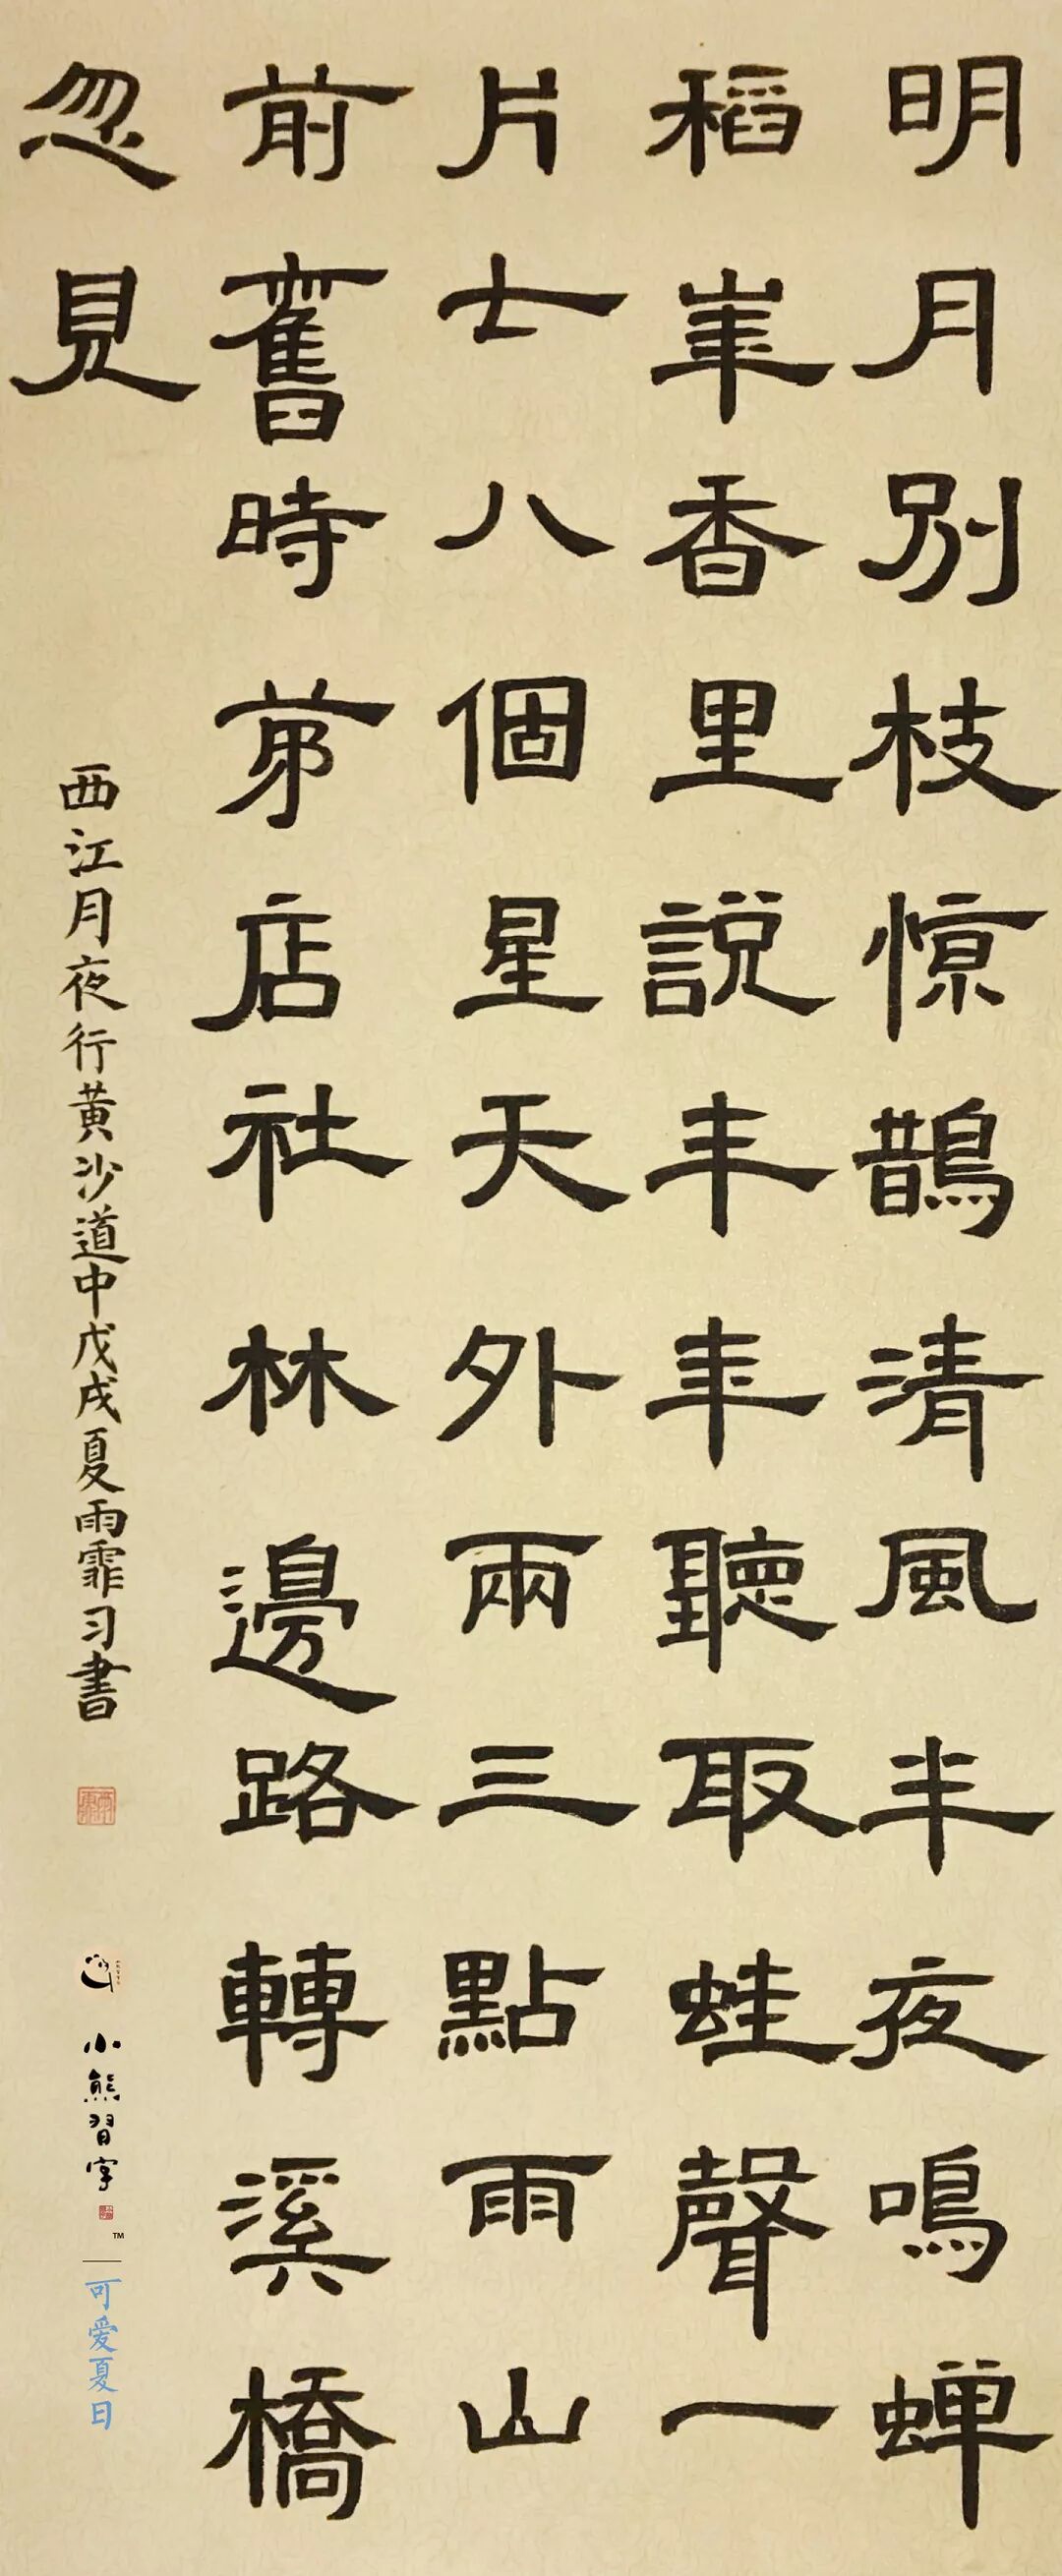 明月别枝惊鵲清風半夜鳴蝉
稻華香里説丰年聽取蛙聲一
片七八個星天外兩三點雨山
前舊時茅店社林邊路轉溪橋
忽見
西江月夜行黄沙道中戊戌夏雨霏习書
小熊習字
TM
可爱夏日